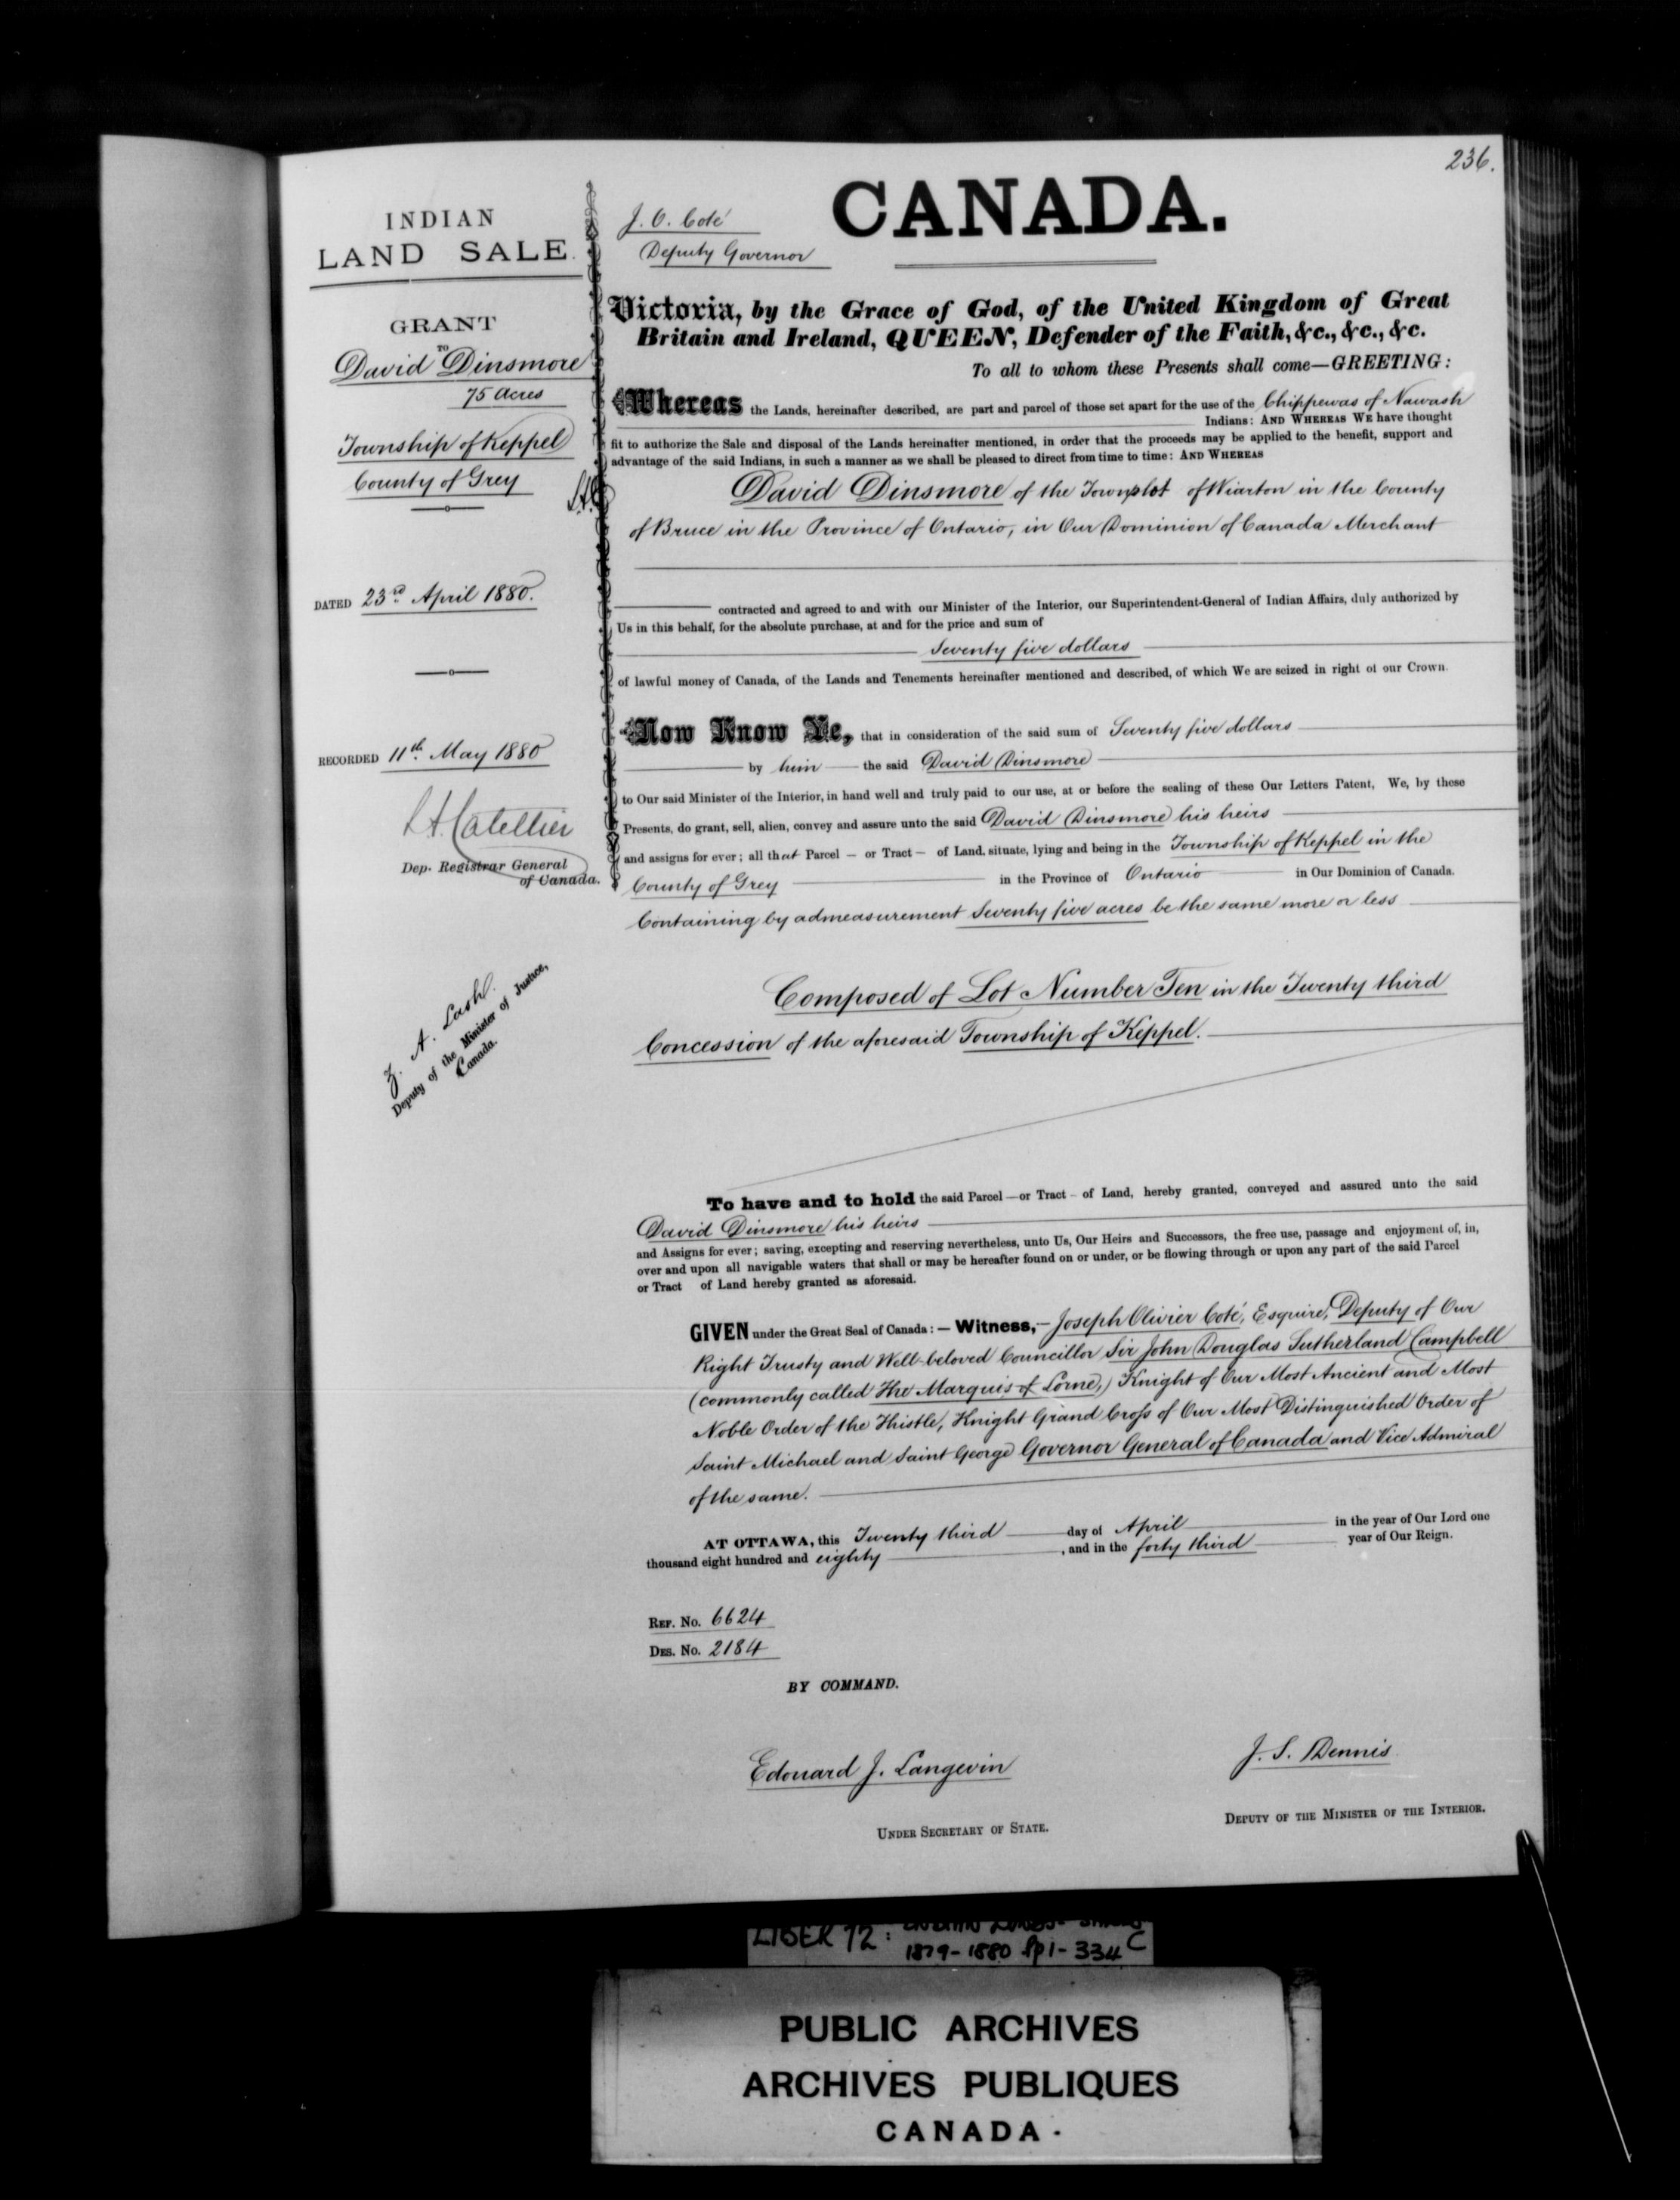 236.
INDIAN
LAND SALE.
GRANT
TO
David Dinsmore
75 Acres
Township of Keppel
County of Grey
DATED 23rd April 1880.
RECORDED 11th May 1880
L.H. Catellier
Dep. Registrar General
of Canada.
Z. A. Lash.
Deputy of the Minister of Justice,
Canada.
J. O. Coté
Deputy Governor
CANADA.
Victoria, by the Grace of God, of the United Kingdom of Great
Britain and Ireland, QUEEN, Defender of the Faith, &c., &c., &c.
To all to whom these Presents shall come—GREETING:
Whereas the Lands, hereinafter described, are part and parcel of those set apart for the use of the Chippewas of Nawash
Indians: AND WHEREAS WE have thought
fit to authorize the Sale and disposal of the Lands hereinafter mentioned, in order that the proceeds may be applied to the benefit, support and
advantage of the said Indians, in such a manner as we shall be pleased to direct from time to time: AND WHEREAS
David Dinsmore of the Townplot of Wiarton in the County
of Bruce in the Province of Ontario, in Our Dominion of Canada Merchant
contracted and agreed to and with our Minister of the Interior, our Superintendent-General of Indian Affairs, duly authorized by
Us in this behalf, for the absolute purchase, at and for the price and sum of
Seventy five dollars
of lawful money of Canada, of the Lands and Tenements hereinafter mentioned and described, of which We are seized in right of our Crown.
Now Know Ye, that in consideration of the said sum of Seventy five dollars
by him the said David Dinsmore
to Our said Minister of the Interior, in hand well and truly paid to our use, at or before the sealing of these Our Letters Patent, We, by these
Presents, do grant, sell, alien, convey and assure unto the said David Dinsmore his heirs
and assigns for ever; all that Parcel — or Tract — of Land, situate, lying and being in the Township of Keppel in the
County of Grey in the Province of Ontario in Our Dominion of Canada.
Containing by admeasurement Seventy five acres be the same more or less
Composed of Lot Number Ten in the Twenty third
Concession of the aforesaid Township of Keppel.
To have and to hold the said Parcel — or Tract - of Land, hereby granted, conveyed and assured unto the said
David Dinsmore his heirs
and Assigns for ever; saving, excepting and reserving nevertheless, unto Us, Our Heirs and Successors, the free use, passage and enjoyment of, in,
over and upon all navigable waters that shall or may be hereafter found on or under, or be flowing through or upon any part of the said Parcel
or Tract of Land hereby granted as aforesaid.
GIVEN under the Great Seal of Canada: — Witness, — Joseph Olivier Coté, Esquire, Deputy of Our
Right Trusty and Well-beloved Councillor Sir John Douglas Sutherland Campbell
(commonly called The Marquis of Lorne,) Knight of Our Most Ancient and Most
Noble Order of the Thistle, Knight Grand Cross of Our Most Distinguished Order of
Saint Michael and Saint George Governor General of Canada and Vice Admiral
of the same.
AT OTTAWA, this Twenty third day of April in the year of Our Lord one
thousand eight hundred and eighty, and in the forty third year of Our Reign.
REF. No. 6624
DES. No. 2184
BY COMMAND.
Edouard J. Langevin
UNDER SECRETARY OF STATE.
J. S. Dennis
DEPUTY OF THE MINISTER OF THE INTERIOR.
LIBER 72:
1879-1880 pp1-334 C
PUBLIC ARCHIVES
ARCHIVES PUBLIQUES
CANADA